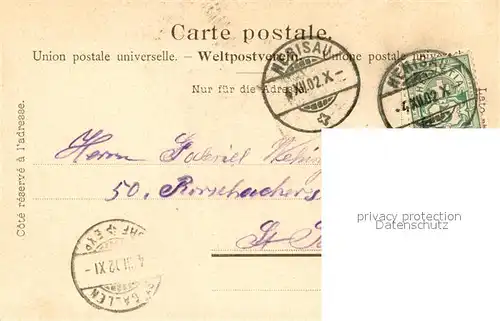 Carte postale.
Union postale universelle. – Weltpostverein. – Unione postale univers
Nur für die Adresse
Côté réservé à l'adresse.
HERISAU
4.XII.02.X–
HERISAU
4.XII.02.X
Herrn Gabriel
50. Rorschachers
St.
privacy protection
Datenschutz
ST. GALLEN
BRF. EXP.
4.XII.02.XI–